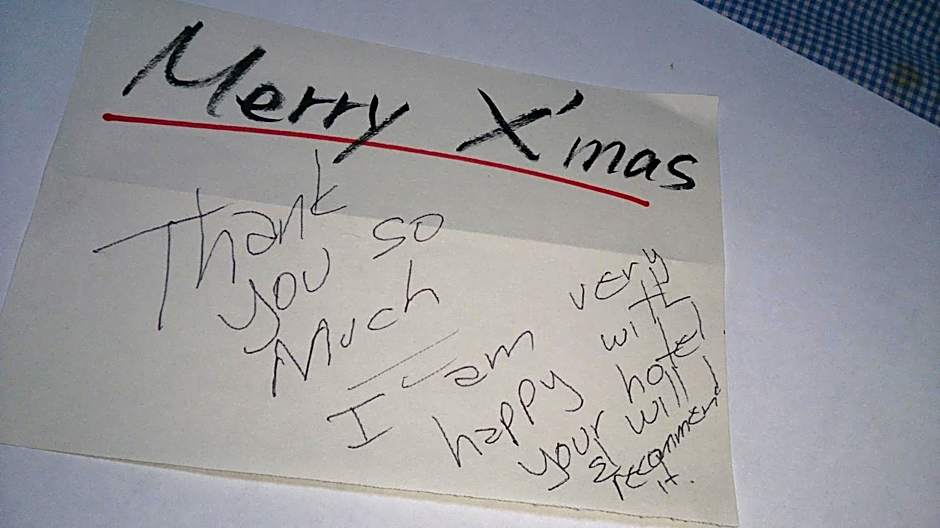 Merry X'mas
Thank
you so
Much
I am very
happy with
your hotel
& will
recommend
it.